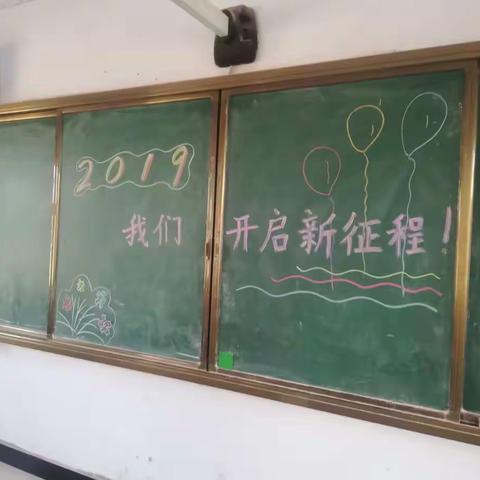 2019
我们开启新征程！